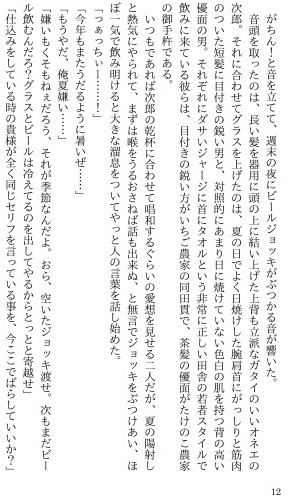 がちん！と音を立てて、週末の夜にビールジョッキがぶつかる音が響いた。
音頭を取ったのは、長い髪を器用に頭の上に結い上げた上背も立派なガタイのいいオネエの
次郎。それに合わせてグラスを上げたのは、夏の日でよく日焼けした腕肩首にがっしりと筋肉
のついた短髪に目付きの鋭い男と、対照的にあまり日に焼けていない色白の肌を持つ背の高い
優面の男。それぞれにダサいジャージに首にタオルという非常に正しい田舎の若者スタイルで
飲みに来ている彼らは、目付きの鋭い方がいちご農家の同田貫で、茶髪の優面がたけのこ農家
の御手杵である。
いつもであれば次郎の乾杯に合わせて唱和するぐらいの愛想を見せる二人だが、夏の陽射し
と熱気にやられて、まずは喉をうるおさねば話も出来ぬ、と無言でジョッキをぶつけあい、ほ
ぼ一気で飲み明けると大きな溜息をついてやっと人の言葉を話し始めた。
「っぁっちぃ……！」
「今年もまたうだるように暑いぜ……」
「もうやだ、俺夏嫌い……」
嫌いもくそもねぇだろう、それが季節なんだよ。おら、空いたジョッキ渡せ。次もまだビー
ル飲むんだろ？グラスとビールは冷えてるのを出してやるからとっとと寄越せ」
「仕込みをしている時の貴様が全く同じセリフを言っている事を、今ここでばらしていいか？」
12